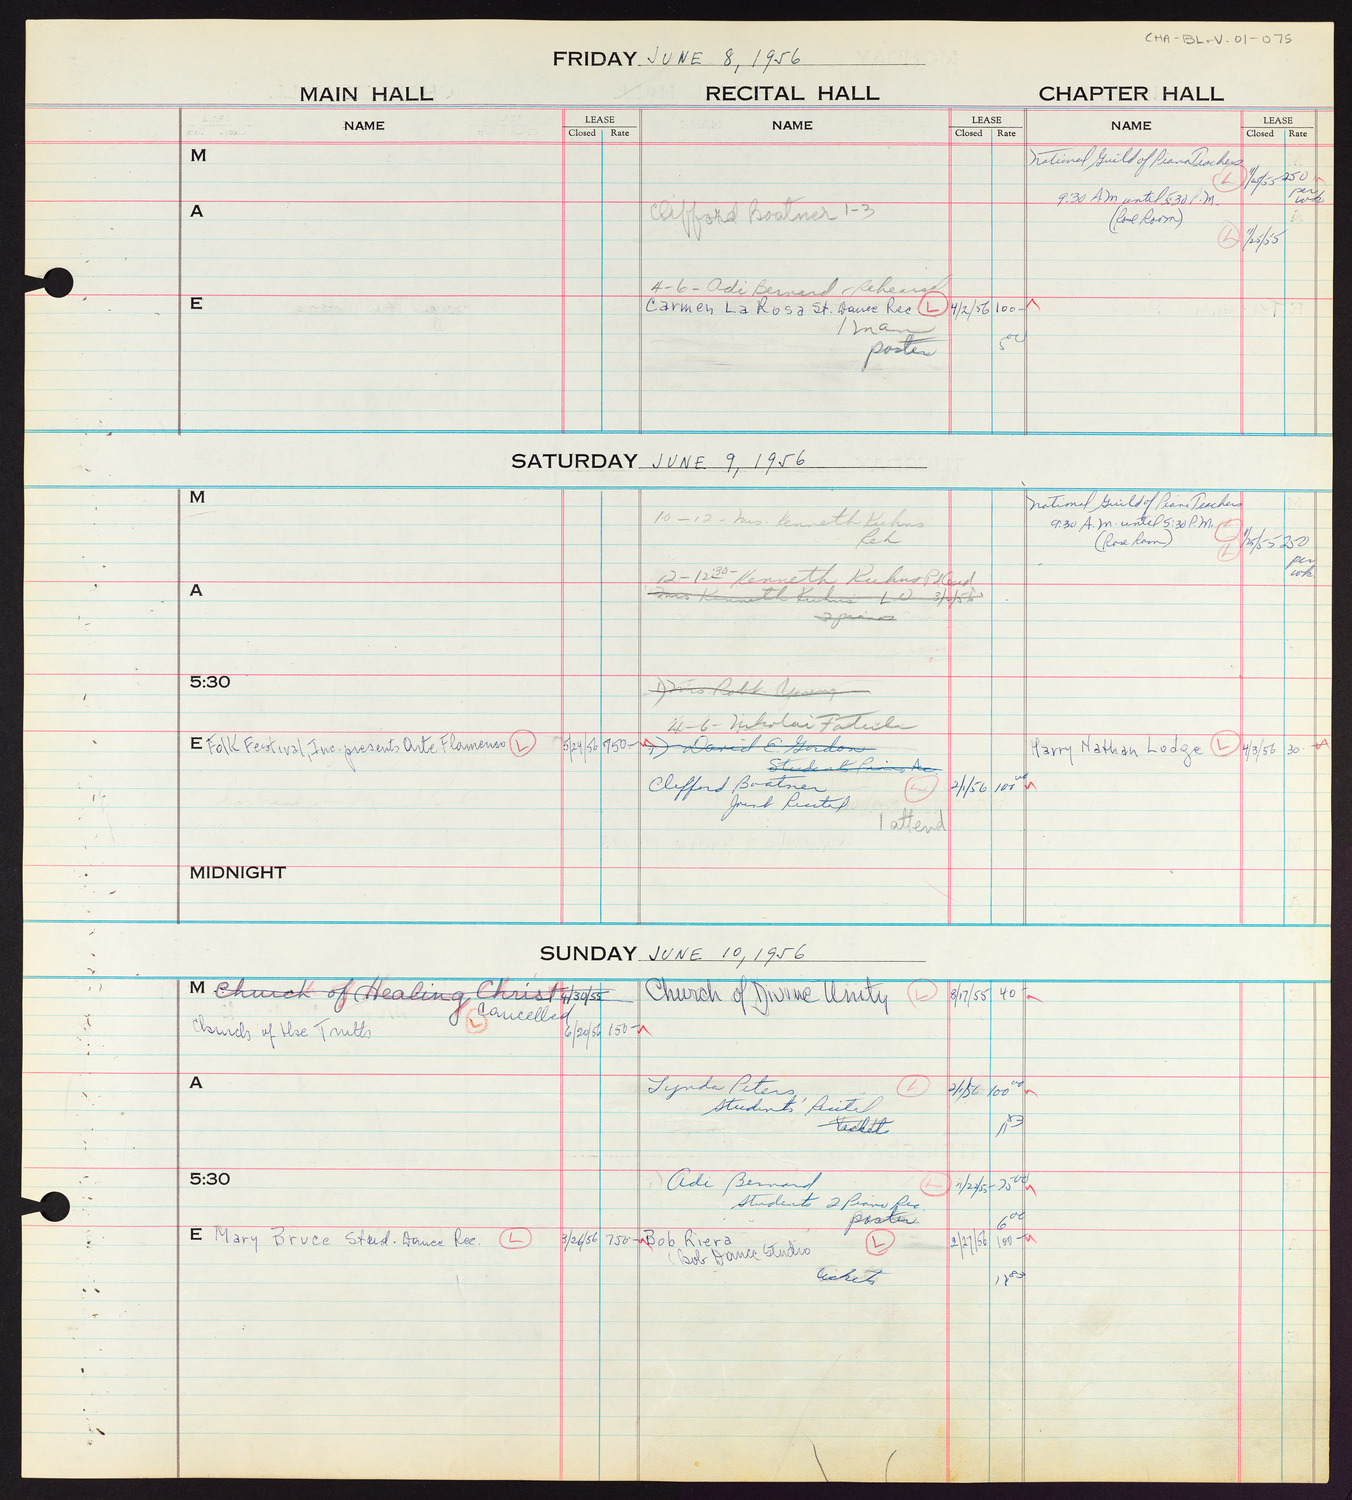 CHA-BL-V.01-075
FRIDAY JUNE 8, 1956
MAIN HALL RECITAL HALL CHAPTER HALL
NAME LEASE Closed Rate NAME LEASE Closed Rate NAME LEASE Closed Rate
M National Guild of Piano Teachers
L 1/25/55 250 per wk
9:30 A.M. until 5:30 P.M.
A Clifford Boatner 1-3 (Rose Room)
L 1/25/55
4-6- Adi Bernard - Rehearsal
E Carmen La Rosa St. Dance Rec L 4/2/56 100-
1 man
poster 5 00
SATURDAY JUNE 9, 1956
M National Guild of Piano Teachers
10-12- Mrs. Kenneth Kuhns 9:30 A.M. until 5:30 P.M.
Reh (Rose Room) L 1/25/55 250 per wk
12-12 30- Kenneth Kuhns
A Mrs Kenneth Kuhns L
2 pianos
5:30 Mrs Robt. Young
4-6- Nikolai Fatula
E Folk Festival, Inc. presents Arte Flamenco L 5/24/56 750- David E. Gordon Harry Nathan Lodge L 4/3/56 30-
Students Piano Rec
Clifford Boatner L 2/1/56 100 00
Joint Recital
1 attend
MIDNIGHT
SUNDAY JUNE 10, 1956
M Church of Healing Christ 4/30/55 Church of Divine Unity L 8/17/55 40-
Cancelled
Church of the Truth L 6/20/56 150-
A Lynda Peters L 2/1/56 100 00
Students' Recital
ticket 11 83
5:30 Adi Bernard L 11/22/55 75 00
Students 2 Piano Rec.
poster 6 00
E Mary Bruce Stud. Dance Rec. L 3/26/56 750- Bob Riera L 2/27/56 100-
(Bob Dance Studio
tickets 12 83